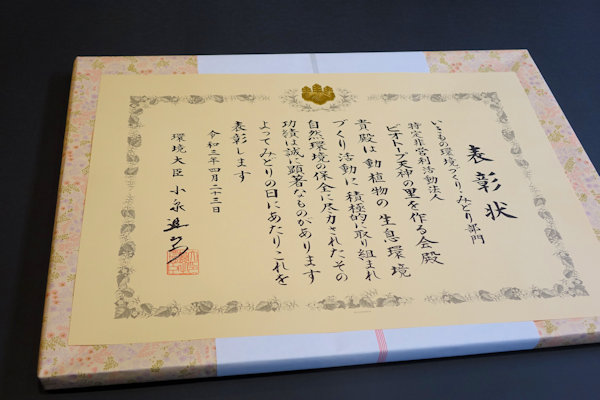 表彰状
いきもの環境づくり・みどり部門
特定非営利活動法人
ビオトープ天神の里を作る会殿
貴殿は動植物の生息環境
づくり活動に積極的に取り組まれ
自然環境の保全に尽力されたその
功績は誠に顕著なものがあります
よってみどりの日にあたりこれを
表彰します
令和三年四月二十三日
環境大臣 小泉進次郎